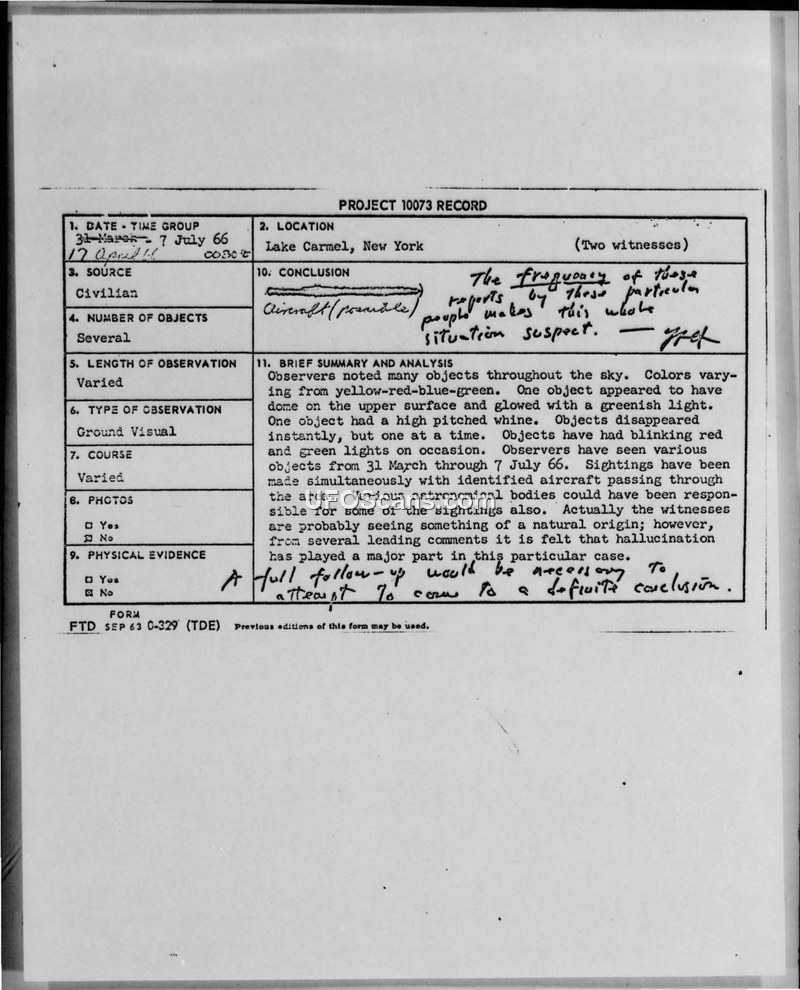 PROJECT 10073 RECORD
1. DATE - TIME GROUP
31 March - 7 July 66
17 April 66 0030Z
2. LOCATION
Lake Carmel, New York (Two witnesses)
3. SOURCE
Civilian
10. CONCLUSION
Aircraft (possible)
The frequency of these
reports by these particular
people makes this whole
situation suspect. —
4. NUMBER OF OBJECTS
Several
5. LENGTH OF OBSERVATION
Varied
6. TYPE OF OBSERVATION
Ground Visual
7. COURSE
Varied
8. PHOTOS
Yes
No
9. PHYSICAL EVIDENCE
Yes
No
11. BRIEF SUMMARY AND ANALYSIS
Observers noted many objects throughout the sky. Colors vary-
ing from yellow-red-blue-green. One object appeared to have
dome on the upper surface and glowed with a greenish light.
One object had a high pitched whine. Objects disappeared
instantly, but one at a time. Objects have had blinking red
and green lights on occasion. Observers have seen various
objects from 31 March through 7 July 66. Sightings have been
made simultaneously with identified aircraft passing through
the area. Various astronomical bodies could have been respon-
sible for some of the sightings also. Actually the witnesses
are probably seeing something of a natural origin; however,
from several leading comments it is felt that hallucination
has played a major part in this particular case.
A full follow-up would be necessary to
attempt to come to a definite conclusion.
FORM
FTD SEP 63 0-329 (TDE) Previous editions of this form may be used.
UFOScans.com